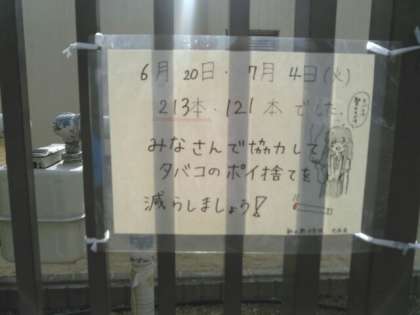 6月20日・7月4日(火)
213本・121本でした
みなさんで協力して
タバコのポイ捨てを
減らしましょう!